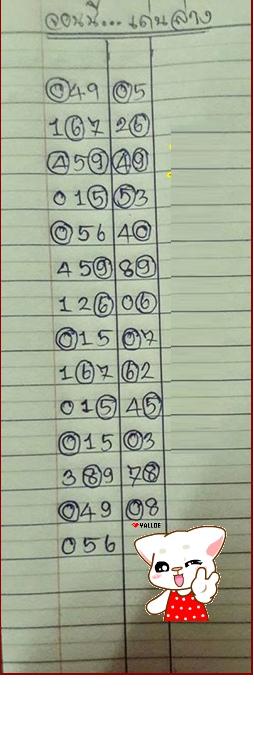 จอนนี... เด่นล่าง
049 05
167 26
459 49
015 53
056 40
459 89
126 06
015 07
167 62
015 45
015 03
389 78
049 08
056
YALLOE